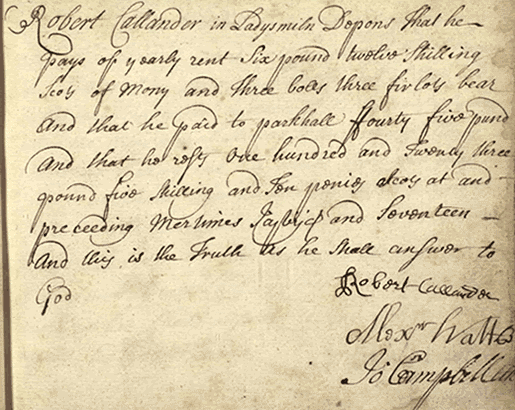 Robert Callander in Ladysmiln Depons that he
pays of yearly rent Six pound twelve shilling
Scos of Mony and three bolls three firlots bear
And that he paid to parkhall ffourty five pund
And that he rests One hundred and Twenty three
pound five shilling and Ten penies Scos at and
preceeding Mertimes Jajvijc and Seventeen
And this is the Truth As he shall answer to
God
Robert Callander
Alexr Watt
Jo Campbell